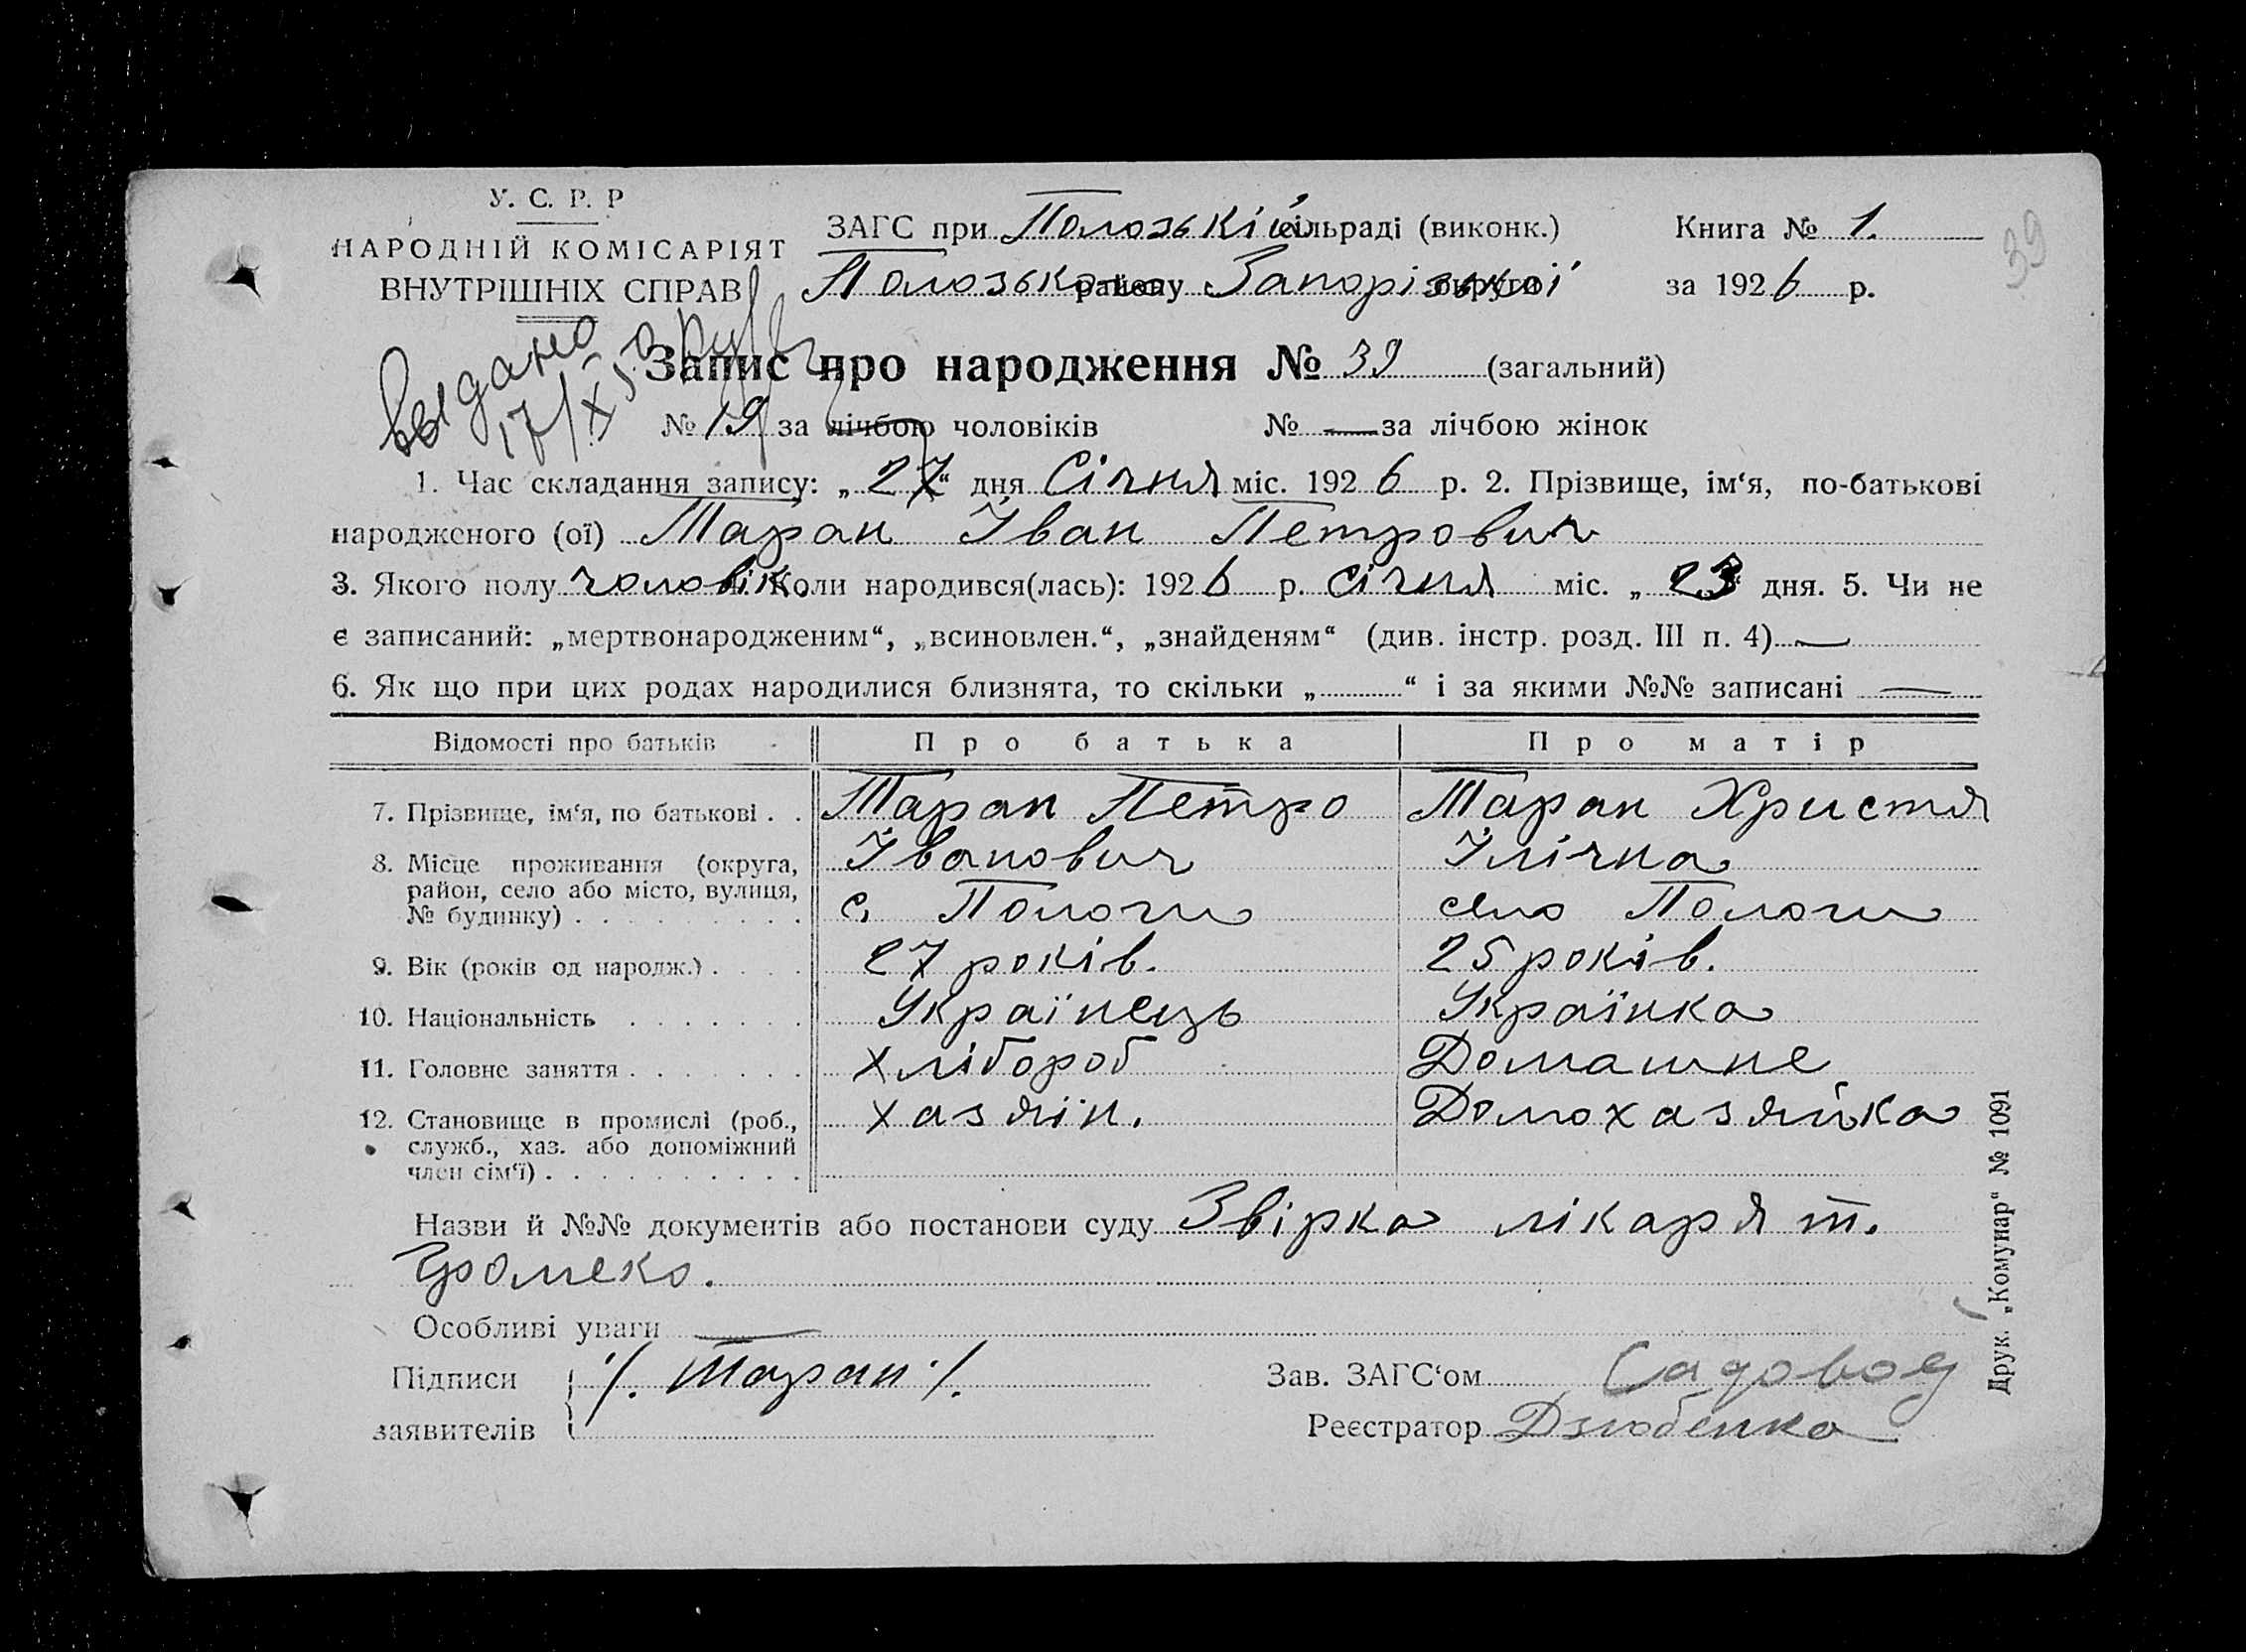 У. С. Р. Р
НАРОДНІЙ КОМІСАРІЯТ
ВНУТРІШНІХ СПРАВ
ЗАГС при Полозькій сільраді (виконк.)
Полозького району Запорізької округи
Книга № 1.
за 1926 р.
39
Запис про народження № 39 (загальний)
Выдано
17/X
№ 19 за лічбою чоловіків № — за лічбою жінок
1. Час складання запису: „27“ дня Січня міс. 1926 р. 2. Прізвище, ім‘я, по-батькові
народженого (ої) Таран Іван Петрович
3. Якого полу чоловік. 4. Коли народився(лась): 1926 р. січня міс. „23“ дня. 5. Чи не
є записаний: „мертвонародженим“, „всиновлен.“, „знайденям“ (див. інстр. розд. III п. 4) —
6. Як що при цих родах народилися близнята, то скільки „ “ і за якими №№ записані —
Відомості про батьків Про батька Про матір
7. Прізвище, ім‘я, по батькові . . Таран Петро Таран Христя
Іванович Ілічна
8. Місце проживання (округа,
район, село або місто, вулиця,
№ будинку) . . . . . . . . . с. Пологи село Пологи
9. Вік (років од народж.) . . . . 27 років. 25 років.
10. Національність . . . . . . . Українець Українка
11. Головне заняття . . . . . . . хлібороб Домашнє
12. Становище в промислі (роб., хазяїн. Домохазяйка
служб., хаз. або допоміжний
член сім‘ї) . . . . . . . . . .
Назви й №№ документів або постанови суду Звірка лікаря т.
Громеко.
Особливі уваги —
Підписи
заявителів
/. Таран ./.
Зав. ЗАГС‘ом Садовод
Реєстратор Дзюбенко
Друк. „Комунар“ № 1091